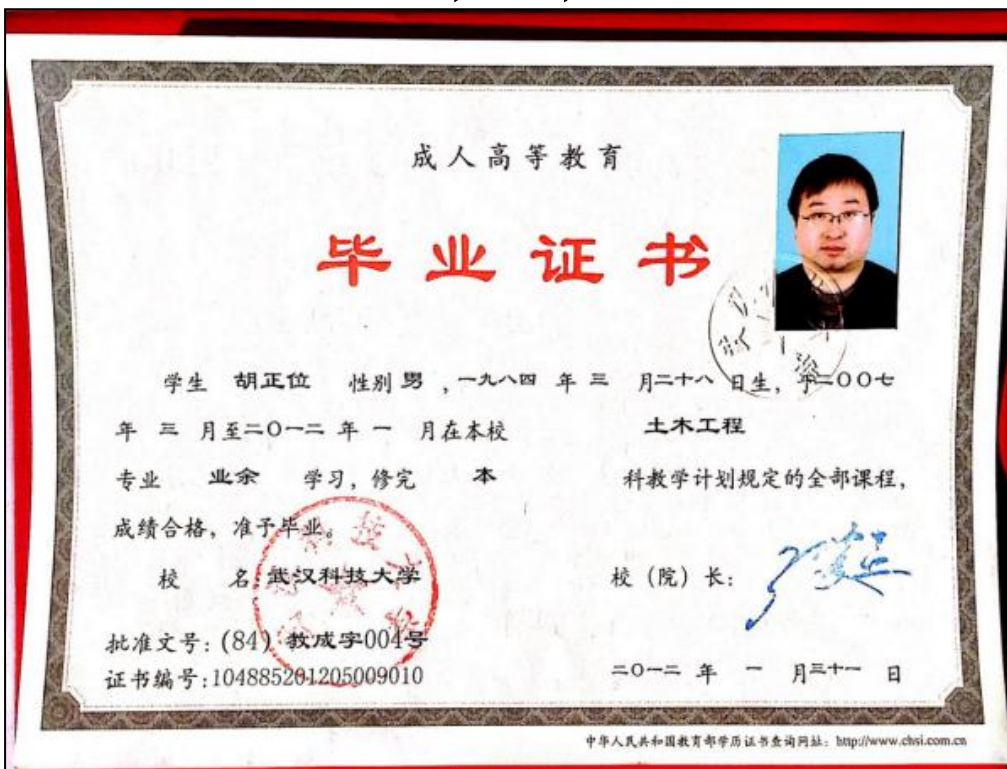 成人高等教育
毕业证书
学生 胡正位 性别 男 ,一九八四 年 三 月二十八 日生, 于二00七
年 三 月至二0一二 年 一 月在本校 土木工程
专业 业余 学习, 修完 本 科教学计划规定的全部课程,
成绩合格, 准予毕业。
校 名:武汉科技大学 校 (院) 长:
批准文号: (84) 教成字004号
证书编号:104885201205009010 二0一二 年 一 月三十一 日
中华人民共和国教育部学历证书查询网址: http://www.chsi.com.cn